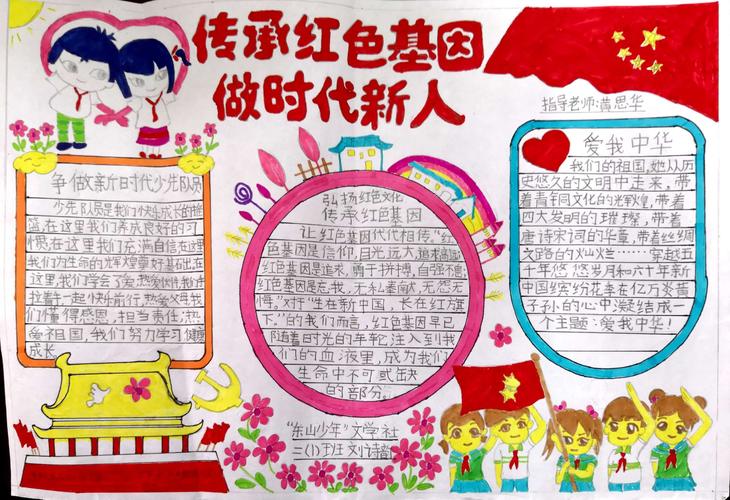 传承红色基因
做时代新人
指导老师:黄思华
争做新时代少先队员
少先队员是我们快乐成长的摇
篮,在这里我们养成良好的习
惯,在这里我们充满自信在这里
我们为生命的辉煌奠好基础,在
这里,我们学会了爱,热爱伙伴,我们手
拉着手一起快乐前行,热爱父母,我
们懂得感恩,担当责任;热
爱祖国,我们努力学习健康
成长
弘扬红色文化
传承红色基因
让红色基因代代相传。“红
色基因是信仰,目光远大,追求高远;
红色基因是追求,勇于拼搏,自强不息;
红色基因是忘我,无私奉献,无怨无
悔。”对于“生在新中国,长在红旗
下。”的我们而言,红色基因早已
随着时光的车轮注入到我
们的血液里,成为我们
生命中不可或缺
的部分。
爱我中华
我们的祖国,她从历
史悠久的文明中走来,带
着青铜文化的光辉,带着
四大发明的璀璨,带着
唐诗宋词的华章,带着丝绸
之路的灿烂……穿越五
千年悠悠岁月和六十年新
中国缤纷花季在亿万炎黄
子孙的心中凝结成一
个主题:爱我中华!
“东山少年”文学社
三(1)班 刘诗